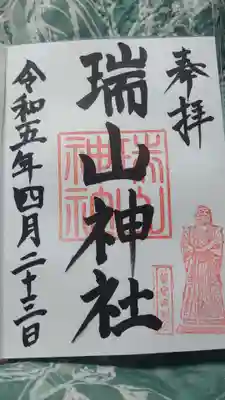 奉拝
瑞山神社
令和五年四月二十三日